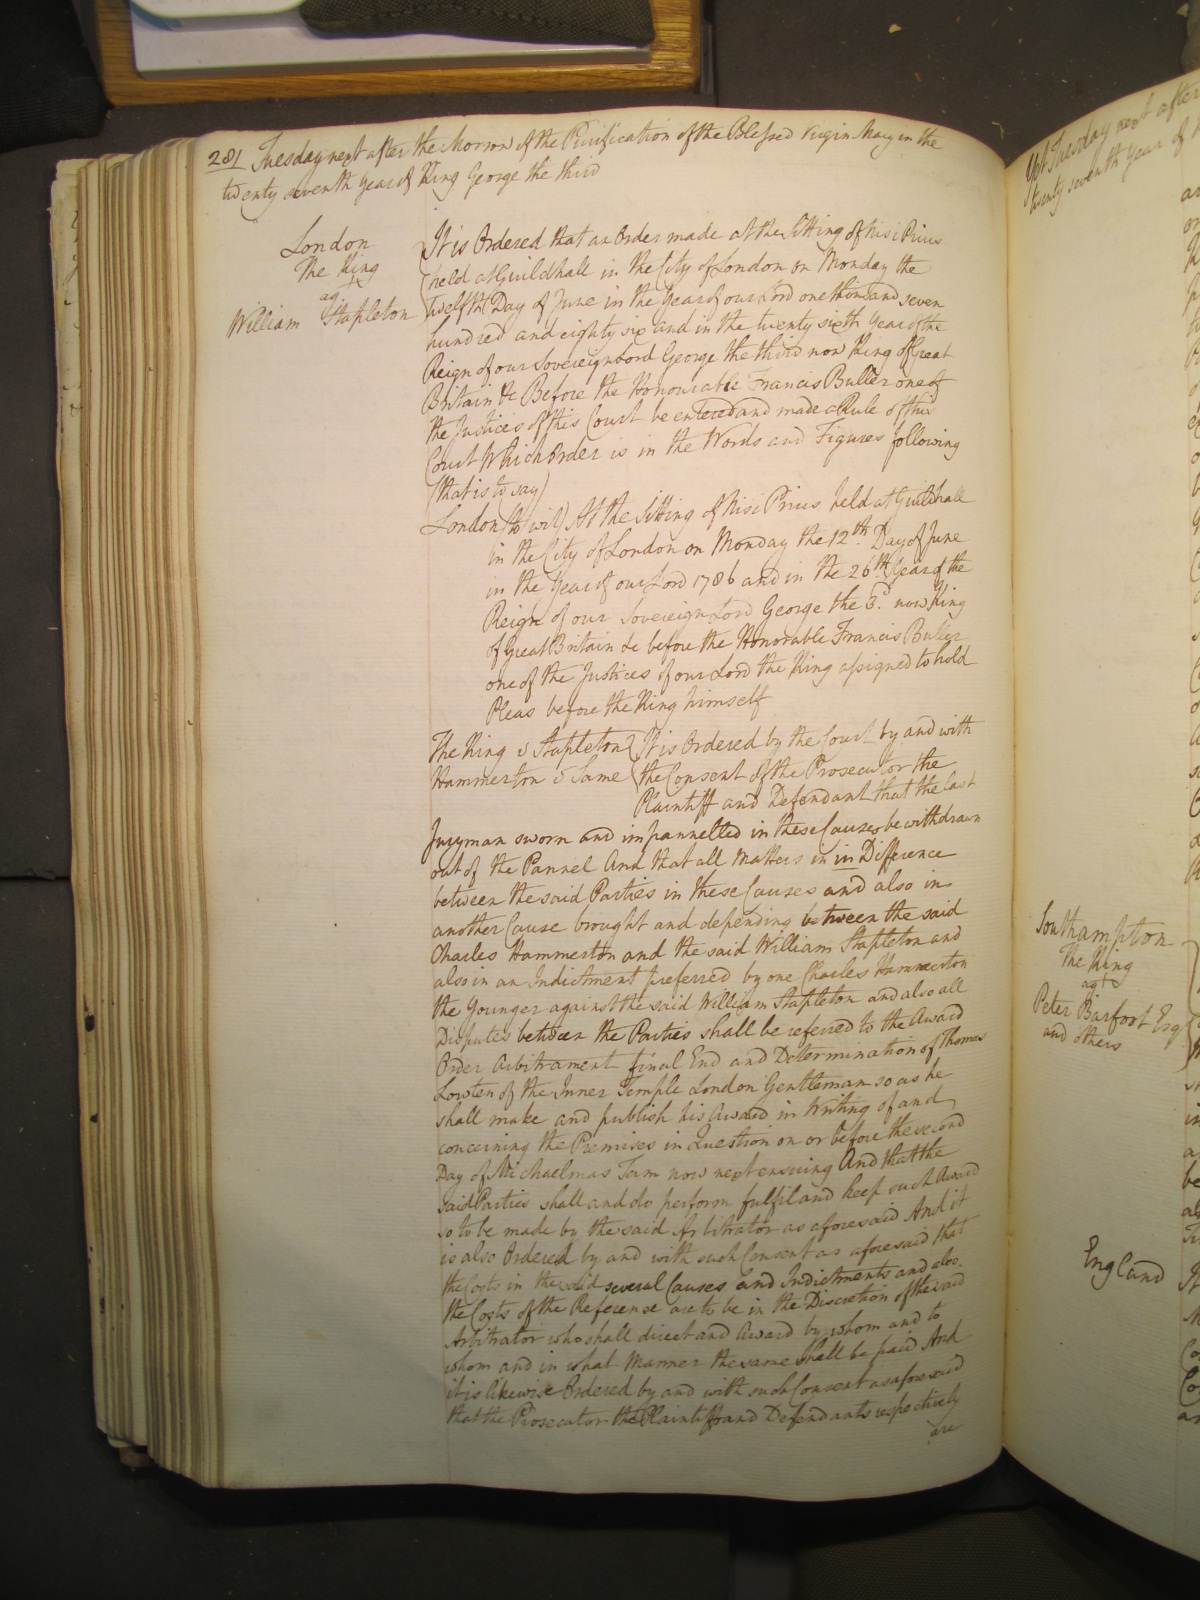 281 Tuesday next after the Morrow of the Purification of the Blessed Virgin Mary in the
twenty seventh Year of King George the third
London
The King
agt
William Stapleton
It is Ordered that an Order made at the Sitting of Nisi Prius
held at Guildhall in the City of London on Monday the
Twelfth Day of June in the Year of our Lord one thousand seven
hundred and eighty six and in the twenty sixth Year of the
Reign of our Sovereign Lord George the third now King of Great
Britain &c Before the Honourable Francis Buller one of
the Justices of this Court be entered and made a Rule of this
Court Which Order is in the Words and Figures following
(that is to say)
London (to wit) At the Sitting of Nisi Prius held at Guildhall
in the City of London on Monday the 12th. Day of June
in the Year of our Lord 1786 and in the 26th. Year of the
Reign of our Sovereign Lord George the 3d. now King
of Great Britain &c before the Honorable Francis Buller
one of the Justices of our Lord the King assigned to hold
Pleas before the King himself
The King v Stapleton It is Ordered by the Court by and with
Hammerton v Same the Consent of the Prosecutor the
Plaintiff and Defendant that the last
Juryman sworn and impannelled in these Causes be withdrawn
out of the Pannel And that all Matters in in Difference
between the said Parties in these Causes and also in
another Cause brought and depending between the said
Charles Hammerton and the said William Stapleton and
also in an Indictment preferred by one Charles Hammerton
the Younger against the said William Stapleton and also all
Disputes between the Parties shall be referred to the Award
Order Arbitrament final End and Determination of Thomas
Lowten of the Inner Temple London Gentleman so as he
shall make and publish his Award in Writing of and
concerning the Premises in Question on or before the second
Day of Michaelmas Term now next ensuing And that the
said Parties shall and do perform fulfil and keep such Award
so to be made by the said Arbitrator as aforesaid And it
is also Ordered by and with such Consent as aforesaid that
the Costs in the said several Causes and Indictments and also
the Costs of the Reference are to be in the Discretion of the said
Arbitrator who shall direct and Award by whom and to
whom and in what Manner the same shall be paid And
it is likewise Ordered by and with such Consent as aforesaid
that the Prosecutor the Plaintiff and Defendants respectively
are
Tuesday next after
twenty seventh Year of
Southampton
The King
agt
Peter Barfoot Esq
and others
England